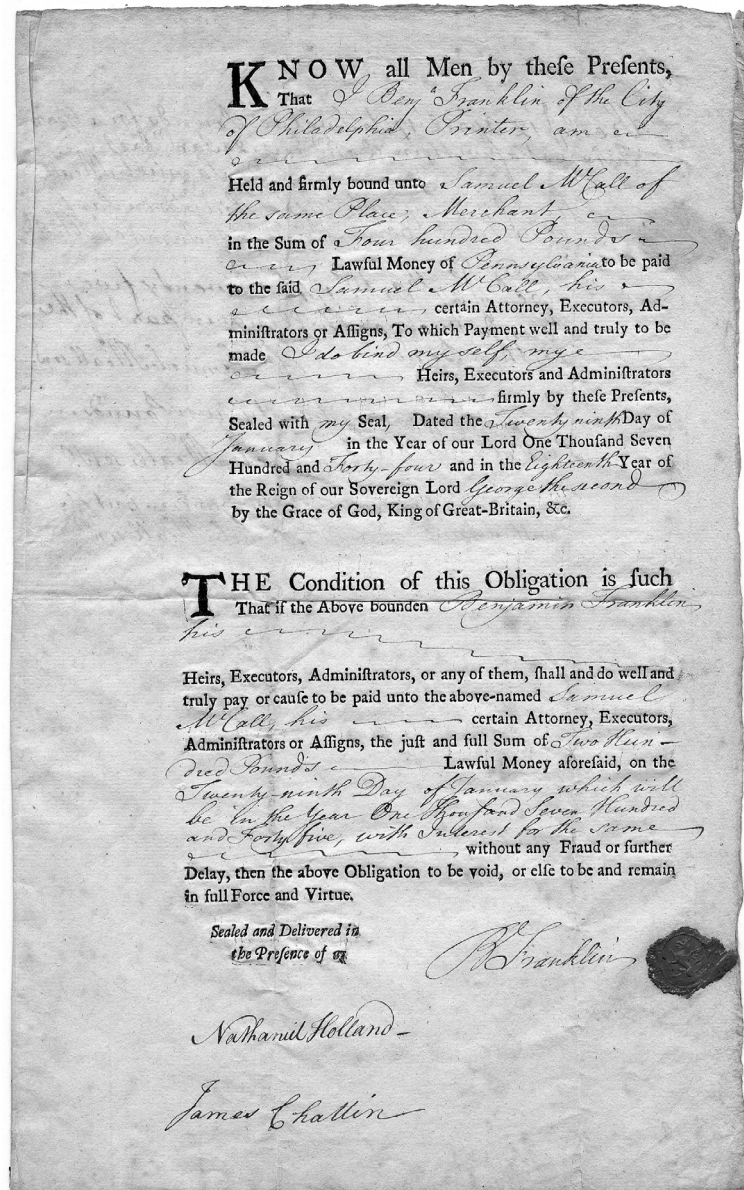 KNOW all Men by theſe Preſents,
That I Benjᵃ Franklin, of the City
of Philadelphia Printer, am
Held and firmly bound unto Samuel McCall of
the same Place, Merchant,
in the Sum of Four hundred Pounds
Lawful Money of Pennsylvania to be paid
to the ſaid Samuel McCall, his
certain Attorney, Executors, Ad-
miniſtrators or Aſſigns, To which Payment well and truly to be
made I do bind myself, my
Heirs, Executors and Adminiſtrators
firmly by theſe Preſents,
Sealed with my Seal, Dated the Twenty ninth Day of
January in the Year of our Lord One Thouſand Seven
Hundred and Forty-four and in the Eighteenth Year of
the Reign of our Sovereign Lord George the second
by the Grace of God, King of Great-Britain, &c.
THE Condition of this Obligation is ſuch
That if the Above bounden Benjamin Franklin
his
Heirs, Executors, Adminiſtrators, or any of them, ſhall and do well and
truly pay or cauſe to be paid unto the above-named Samuel
McCall, his certain Attorney, Executors,
Adminiſtrators or Aſſigns, the juſt and full Sum of Two Hun-
dred Pounds Lawful Money aforeſaid, on the
Twenty-ninth Day of January which will
be in the Year One Thouſand Seven Hundred
and Forty five, with Interest for the same
without any Fraud or further
Delay, then the above Obligation to be void, or elſe to be and remain
in full Force and Virtue.
Sealed and Delivered in
the Preſence of us
B Franklin
Nathaniel Holland
James Chattin